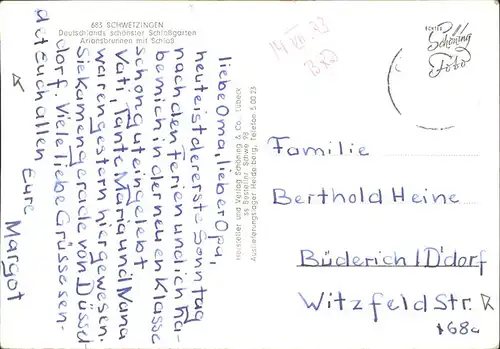 683 SCHWETZINGEN
Deutschlands schönster Schloßgarten
Arionsbrunnen mit Schloß
liebe Oma, lieber Opa,
heute ist der erste Sonntag
nach den Ferien und ich ha-
be mich in der neuen Klasse
schon gut eingelebt
Vati, Tante Maria und Nana
waren gestern hier gewesen.
Sie kamen gerade von Düssel-
dorf. Viele liebe Grüsse sen-
det euch allen Eure
Margot
Hersteller und Verlag Schöning & Co., Lübeck
Bestellnr. Schwe 98
Auslieferungslager Heidelberg, Telefon 5 00 23
ECHTES
Schöning
Foto
Familie
Berthold Heine
Büderich/D'dorf
Witzfeld Str.
168a